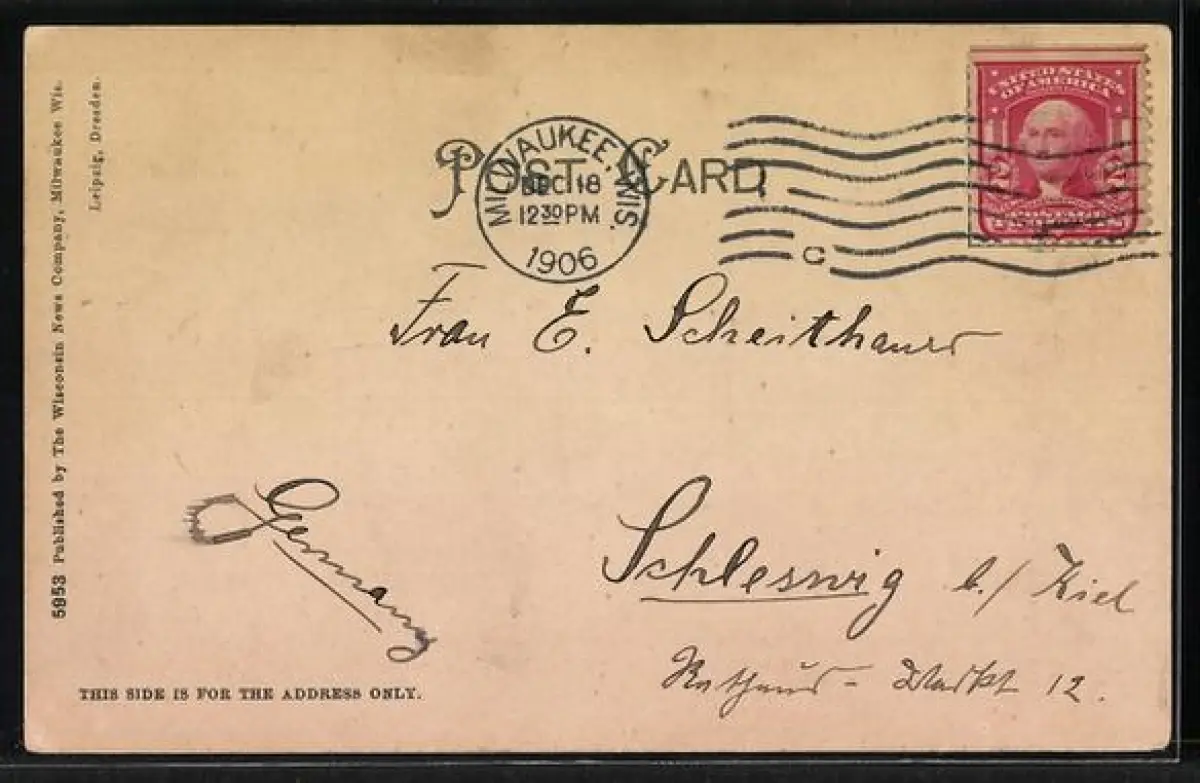 5953 Published by The Wisconsin News Company, Milwaukee Wis.
Leipzig, Dresden.
POST CARD
MILWAUKEE, WIS.
DEC 18
12 30 PM
1906
C
UNITED STATES
OF AMERICA
2 2
Frau E. Scheithauer
Germany
Schleswig b./ Kiel
Rathaus-Markt 12.
THIS SIDE IS FOR THE ADDRESS ONLY.